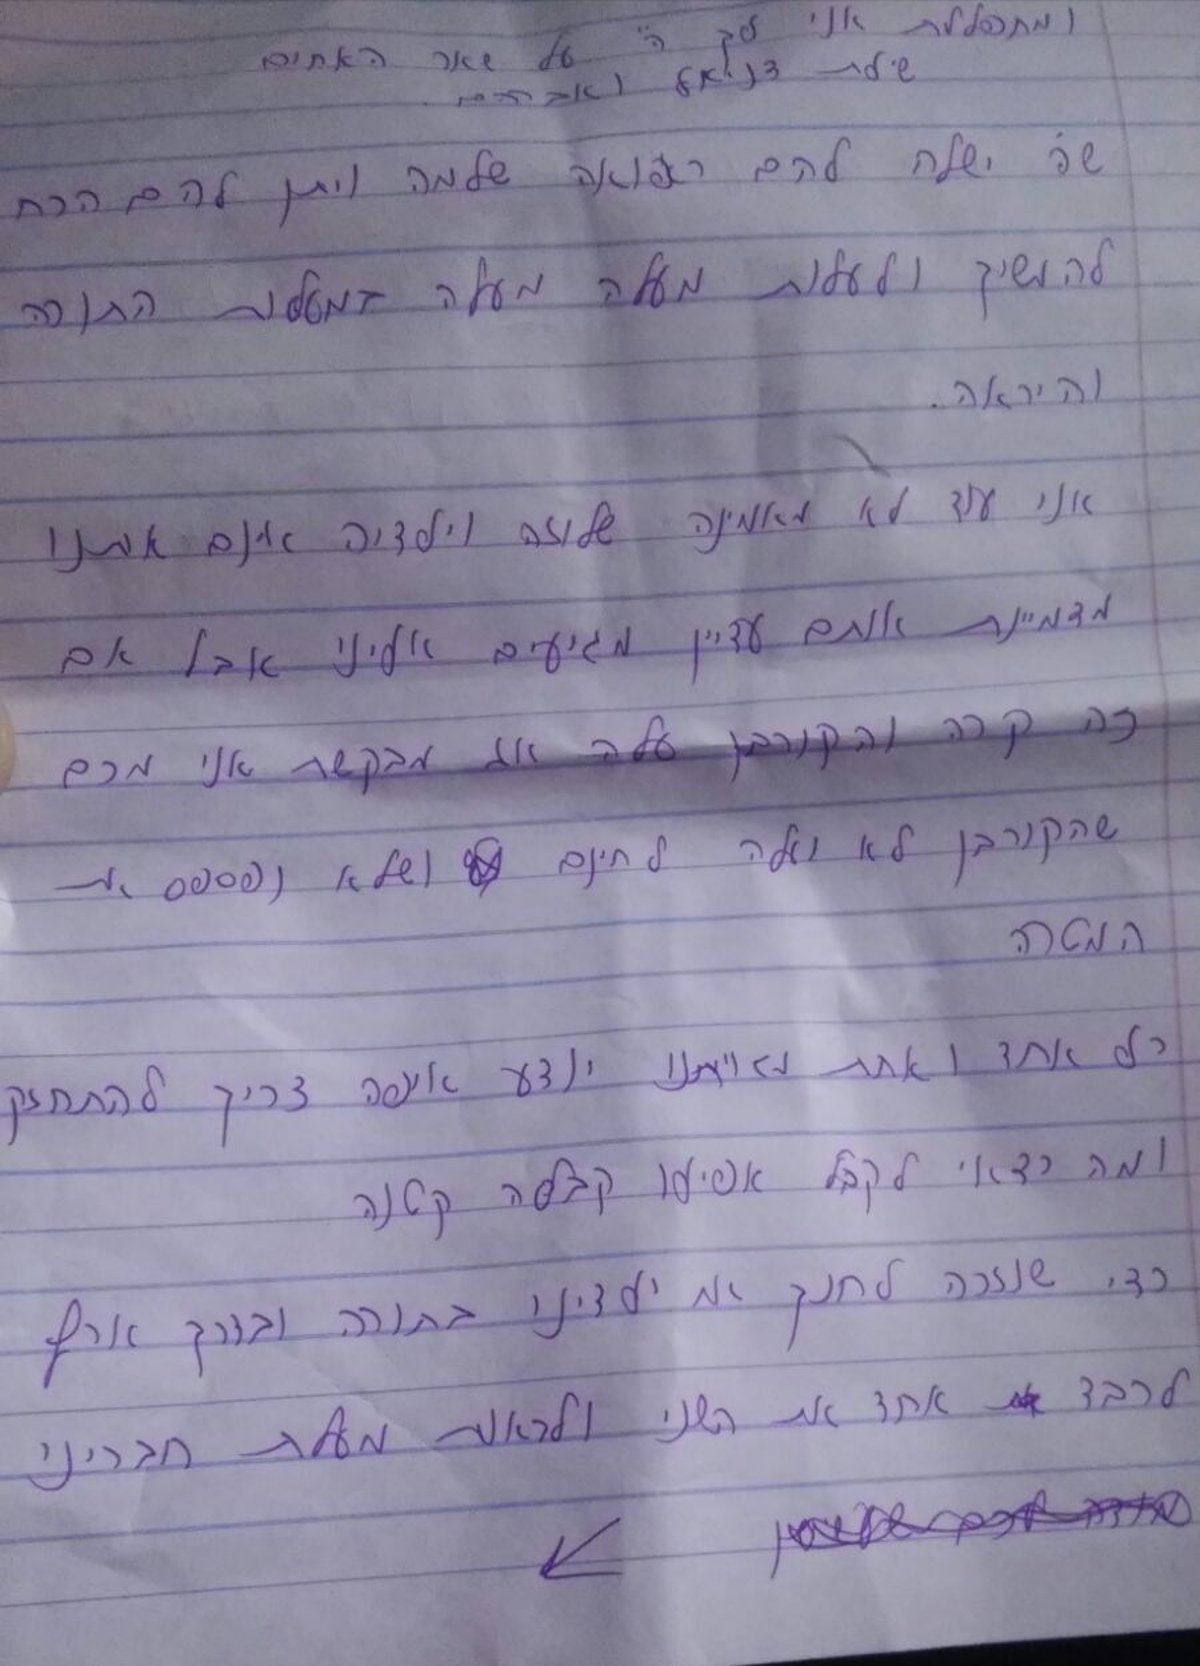 ומתפללת אני לך ה' על שאר האחים
שילת דניאל ואברהם.
שה' ישלח להם רפואה שלמה ויתן להם הכח
להמשיך ולעלות מעלה מעלה במעלות התורה
והיראה.
אני עוד לא מאמינה שלוזה וילדיה אינם אתנו
מדמיינת אותם עדיין מגיעים אלינו אבל אם
זה קרה והקורבן עלה אז מבקשת אני מכם
שהקורבן לא יעלה לחינם ושלא נפספס את
המטרה
כל אחד ואחת מאיתנו יודע איפה צריך להתחזק
ומה כדאי לקבל אפילו קבלה קטנה
כדי שנזכה לחנך את ילדינו בתורה ובדרך ארץ
לכבד אחד את השני ולראות מעלת חברינו